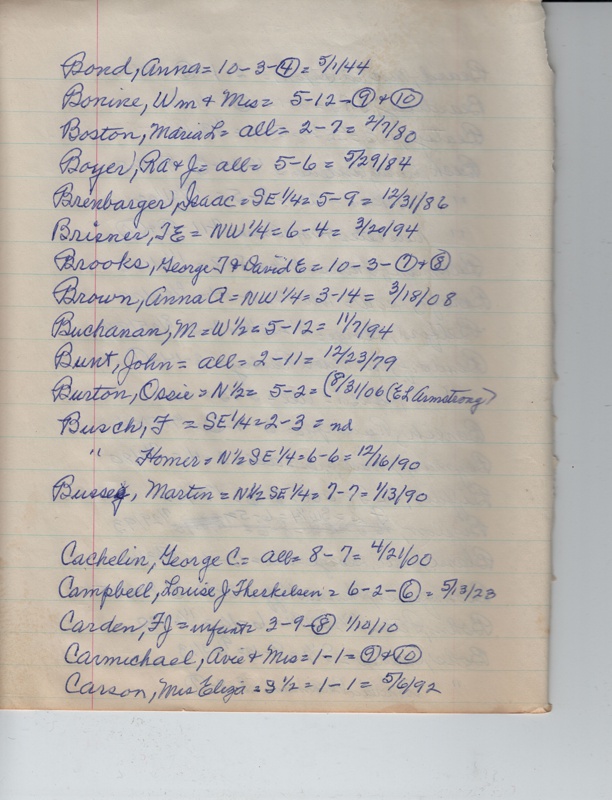 Bond, Anna = 10-3-④ = 5/1/44
Bonine, Wm & Mrs = 5-12-⑨ & ⑩
Boston, Maria L = all = 2-7 = 2/7/80
Boyer, RA & J = all = 5-6 = 5/29/84
Brenbarger, Isaac = SE 1/4 = 5-9 = 12/31/86
Briener, J E = NW 1/4 = 6-4 = 3/20/94
Brooks, George T & David E = 10-3-⑦ & ⑧
Brown, Anna A = NW 1/4 = 3-14 = 3/18/08
Buchanan, M = W 1/2 = 5-12 = 11/7/94
Bunt, John = all = 2-11 = 12/23/79
Burton, Ossie = N 1/2 = 5-2 = (8/31/06 (EL Armstrong)
Busch, F = SE 1/4 = 2-3 = nd
" Homer = N 1/2 SE 1/4 = 6-6 = 12/16/90
Bussey, Martin = N 1/2 SE 1/4 = 7-7 = 1/13/90
Cachelin, George C = all = 8-7 = 4/21/00
Campbell, Louise J Therkelsen = 6-2-⑥ = 5/13/23
Carden, FJ = infant = 3-9-⑧ 1/10/10
Carmichael, Avie & Mrs = 1-1 = ⑨ & ⑩
Carson, Mrs Eliza = S 1/2 = 1-1 = 5/6/92